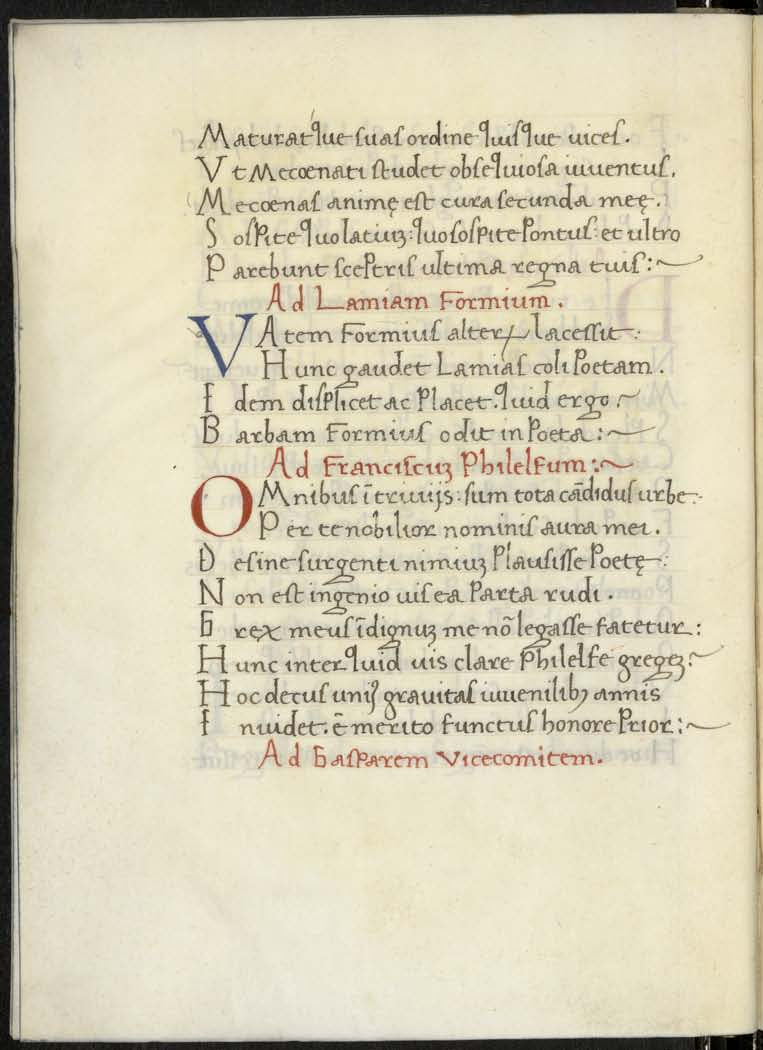 Maturatque suas ordine quisque uices.
Vt Mecœnati studet obsequiosa iuuentus.
Mecœnas animę est cura secunda meę.
Sospite quo latiuȝ: quo sospite Pontus: et ultro
Parebunt sceptris ultima regna tuis:~
Ad Lamiam Formium.
VAtem Formius alter lacessit:
Hunc gaudet Lamias coli Poetam.
Idem displicet ac placet. quid ergo?
Barbam Formius odit in Poeta:~
Ad Franciscuȝ Philelfum:~
OMnibus ī triuijs: sum tota cādidus urbe.
Per te nobilior nominis aura mei.
Desine surgenti nimiuȝ plausisse Poetę:
Non est ingenio uis ea parta rudi.
Grex meus īdignuȝ me nō legasse fatetur:
Hunc inter quid uis clare Philelfe gregeȝ?
Hoc decus uniꝰ grauitas iuuenilibȝ annis
Inuidet. ē merito functus honore Prior:~
Ad Gasparem Vicecomitem.